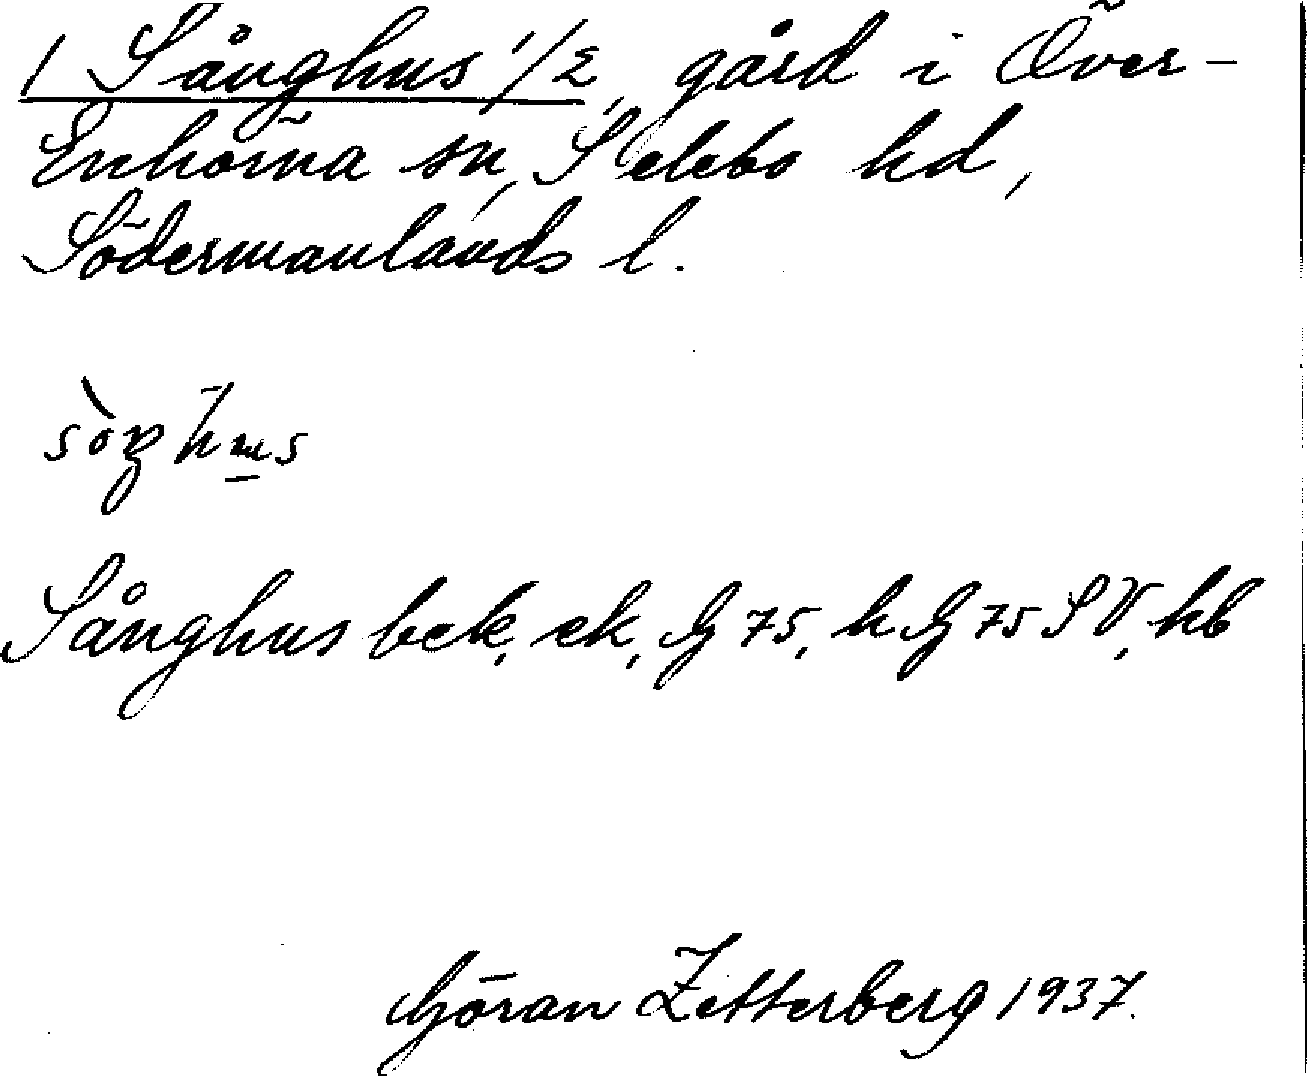 1 Sånghus 1/2, gård i Över-
Enhörna sn, Selebo hd,
Södermanlands l.
Sånghus bek, ek, G 75, h G 75 SV, hb
Göran Zetterberg 1937.